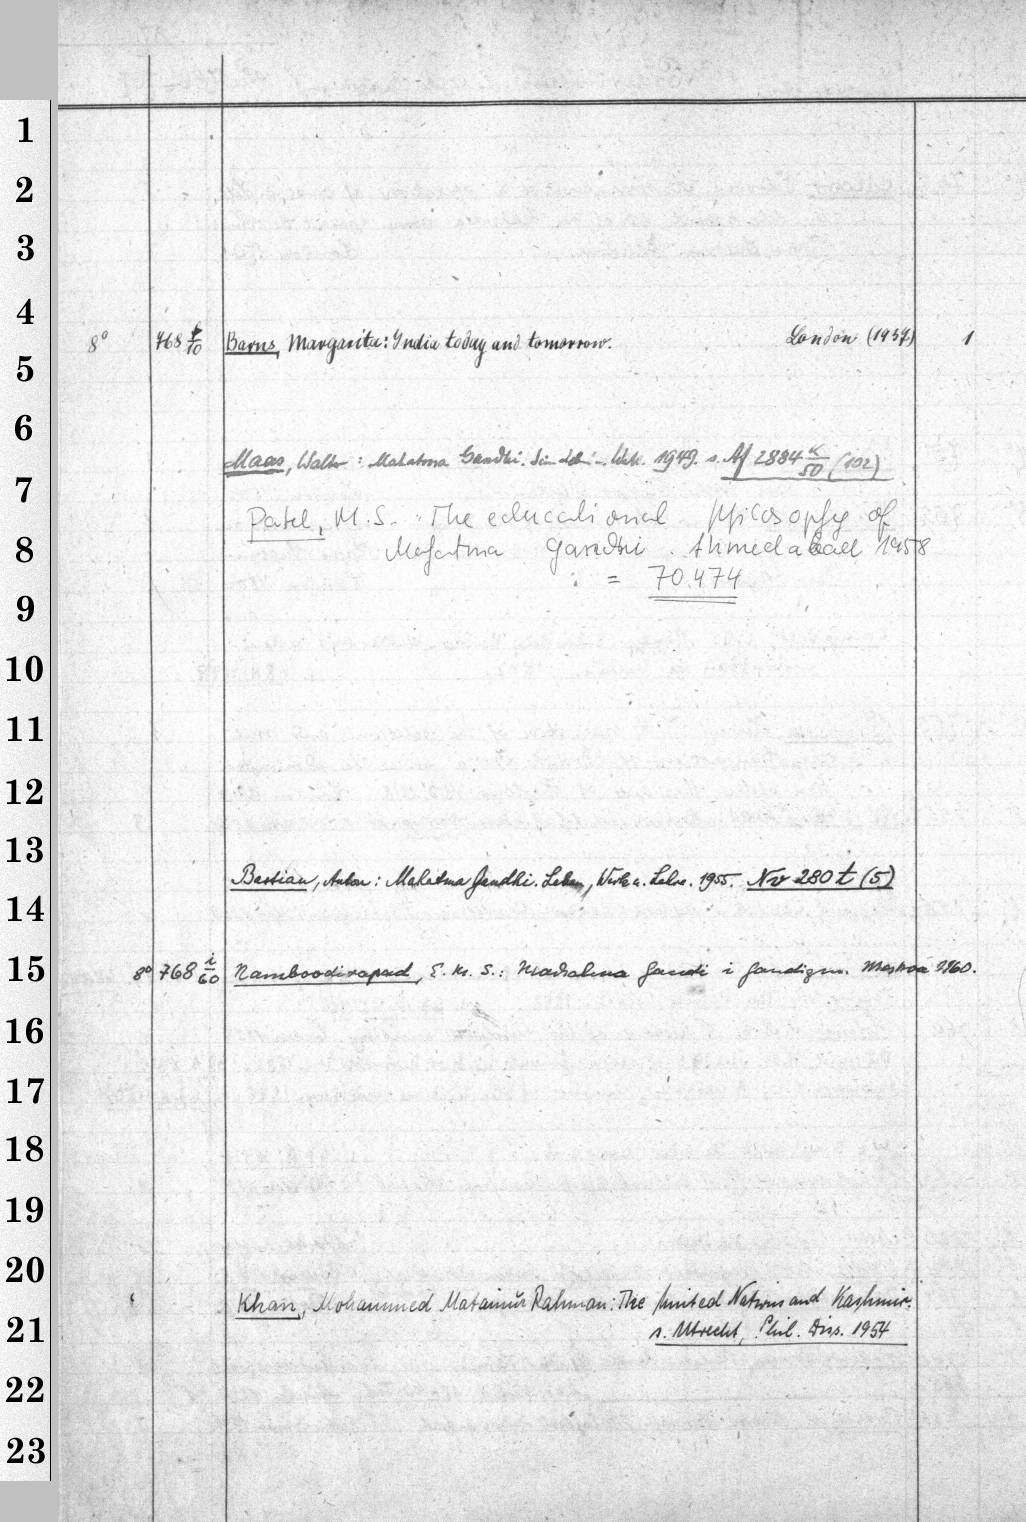 1
2
3
4
8° 768 f/10 Barns, Margarita: India today and tomorrow. London (1937) 1
5
6
Maas, Walter: Mahatma Gandhi. 1949. s. Af 2884 k/50 (102)
7
Patel, M.S.: The educational philosophy of
8
Mahatma Gandhi. Ahmedabad 1958
= 70.474
9
10
11
12
13
Bastian, Anton: Mahatma Gandhi. Leben, Werk u. Lehre. 1955. Nv 280 t (5)
14
15
8° 768 i/60 Namboodiripad, E. M. S.: Machatma Gandi i gandizm. Moskva 1960.
16
17
18
19
20
Khan, Mohammed Matainur Rahman: The United Nations and Kashmir.
21
s. Utrecht, Phil. Diss. 1954
22
23